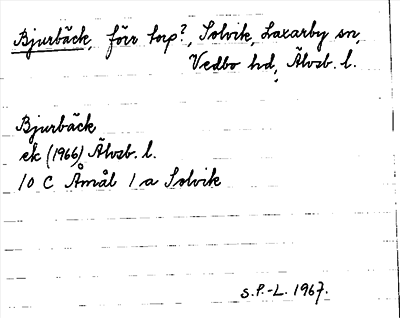 Bjurbäck, förr torp?, Solvik, Laxarby sn,
Vedbo hd, Älvsb. l.
Bjurbäck
ek (1966) Älvsb. l.
10 C Åmål 1 a Solvik
S.P.-L. 1967.